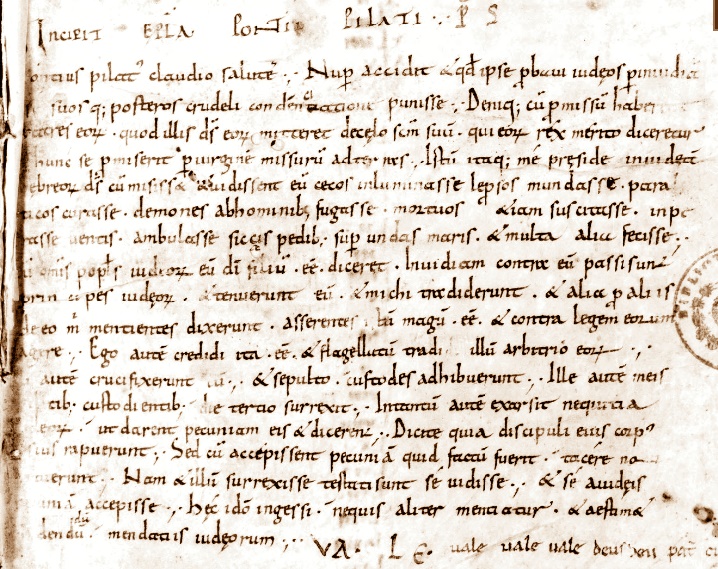 INCIPIT EPLA PONTII PILATI · P S
pontius pilat' claudio salutē ·, Nup accidit & qd ipse pbaui iudęos p inuidiā
se suosq; posteros crudeli condēnatione punisse ·, Deniq; cū pmissū haberent
patres eorꝝ · quod illis d̄s eorꝝ mitteret de cęlo scm̄ suū · qui eorꝝ rex merito diceretur
hunc se pmiserit p uirginē missurū ad terras · Istū itaq; me pręside in iudęā
ebreorꝝ d̄s cū misiss& & uidissent eū cecos inluminasse leprsos mundasse · para
ticos curasse · demones ab hominib; fugasse · mortuos &iam suscitasse · inpe
rasse uentis · ambulasse siccis pedib; sup undas maris · & multa alia fecisse ·,
omīs popls iudeorꝝ eū dī filiū · ēē · diceret · Inuidiam contra eū passi sunt
prin cipes iudęorꝝ · & tenuerunt eū · & michi tradiderunt · & alia p aliis
de eo m̄ mentientes dixerunt · asserentes istū magū · ēē · & contra legem eorum
agere ·, Ego autē credidi ita · ēē · & flagellatū tradi illū arbitrio eorꝝ ·,
autē crucifixerunt eū ·, & sepulto · custodes adhibuerunt ·, Ille autē meis
tib; custodientib; die tertio surrexit ·, Intantū autē exarsit nequitia
eorꝝ · ut darent pecuniam eis & dicerent ·, Dicite quia discipuli eius corp'
ipsius rapuerunt ·, Sed cū accepissent pecuniā quid factū fuerit · tacere no
uerunt ·, Nam & illū surrexisse testati sunt se uidisse ·, & se a iudęis
pecuniā accepisse ·, hęc idō ingessi · nequis aliter mentiatur · & aestim&
dendū mendatiis iudęorum ·,
VA · LE · uale uale uale deus